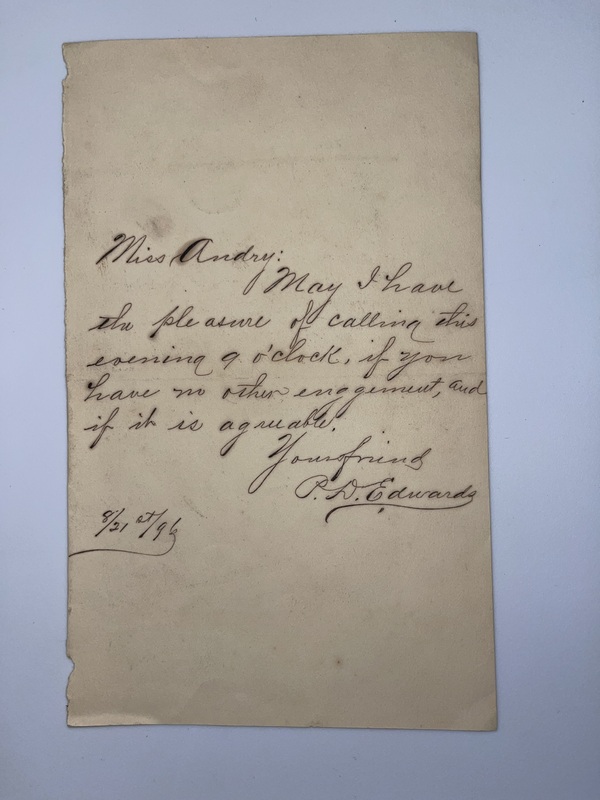 Miss Andry:
May I have
the pleasure of calling this
evening 9 o'clock, if you
have no other enggement, and
if it is agreable.
Your friend
P. D. Edwards
8/21 st/96